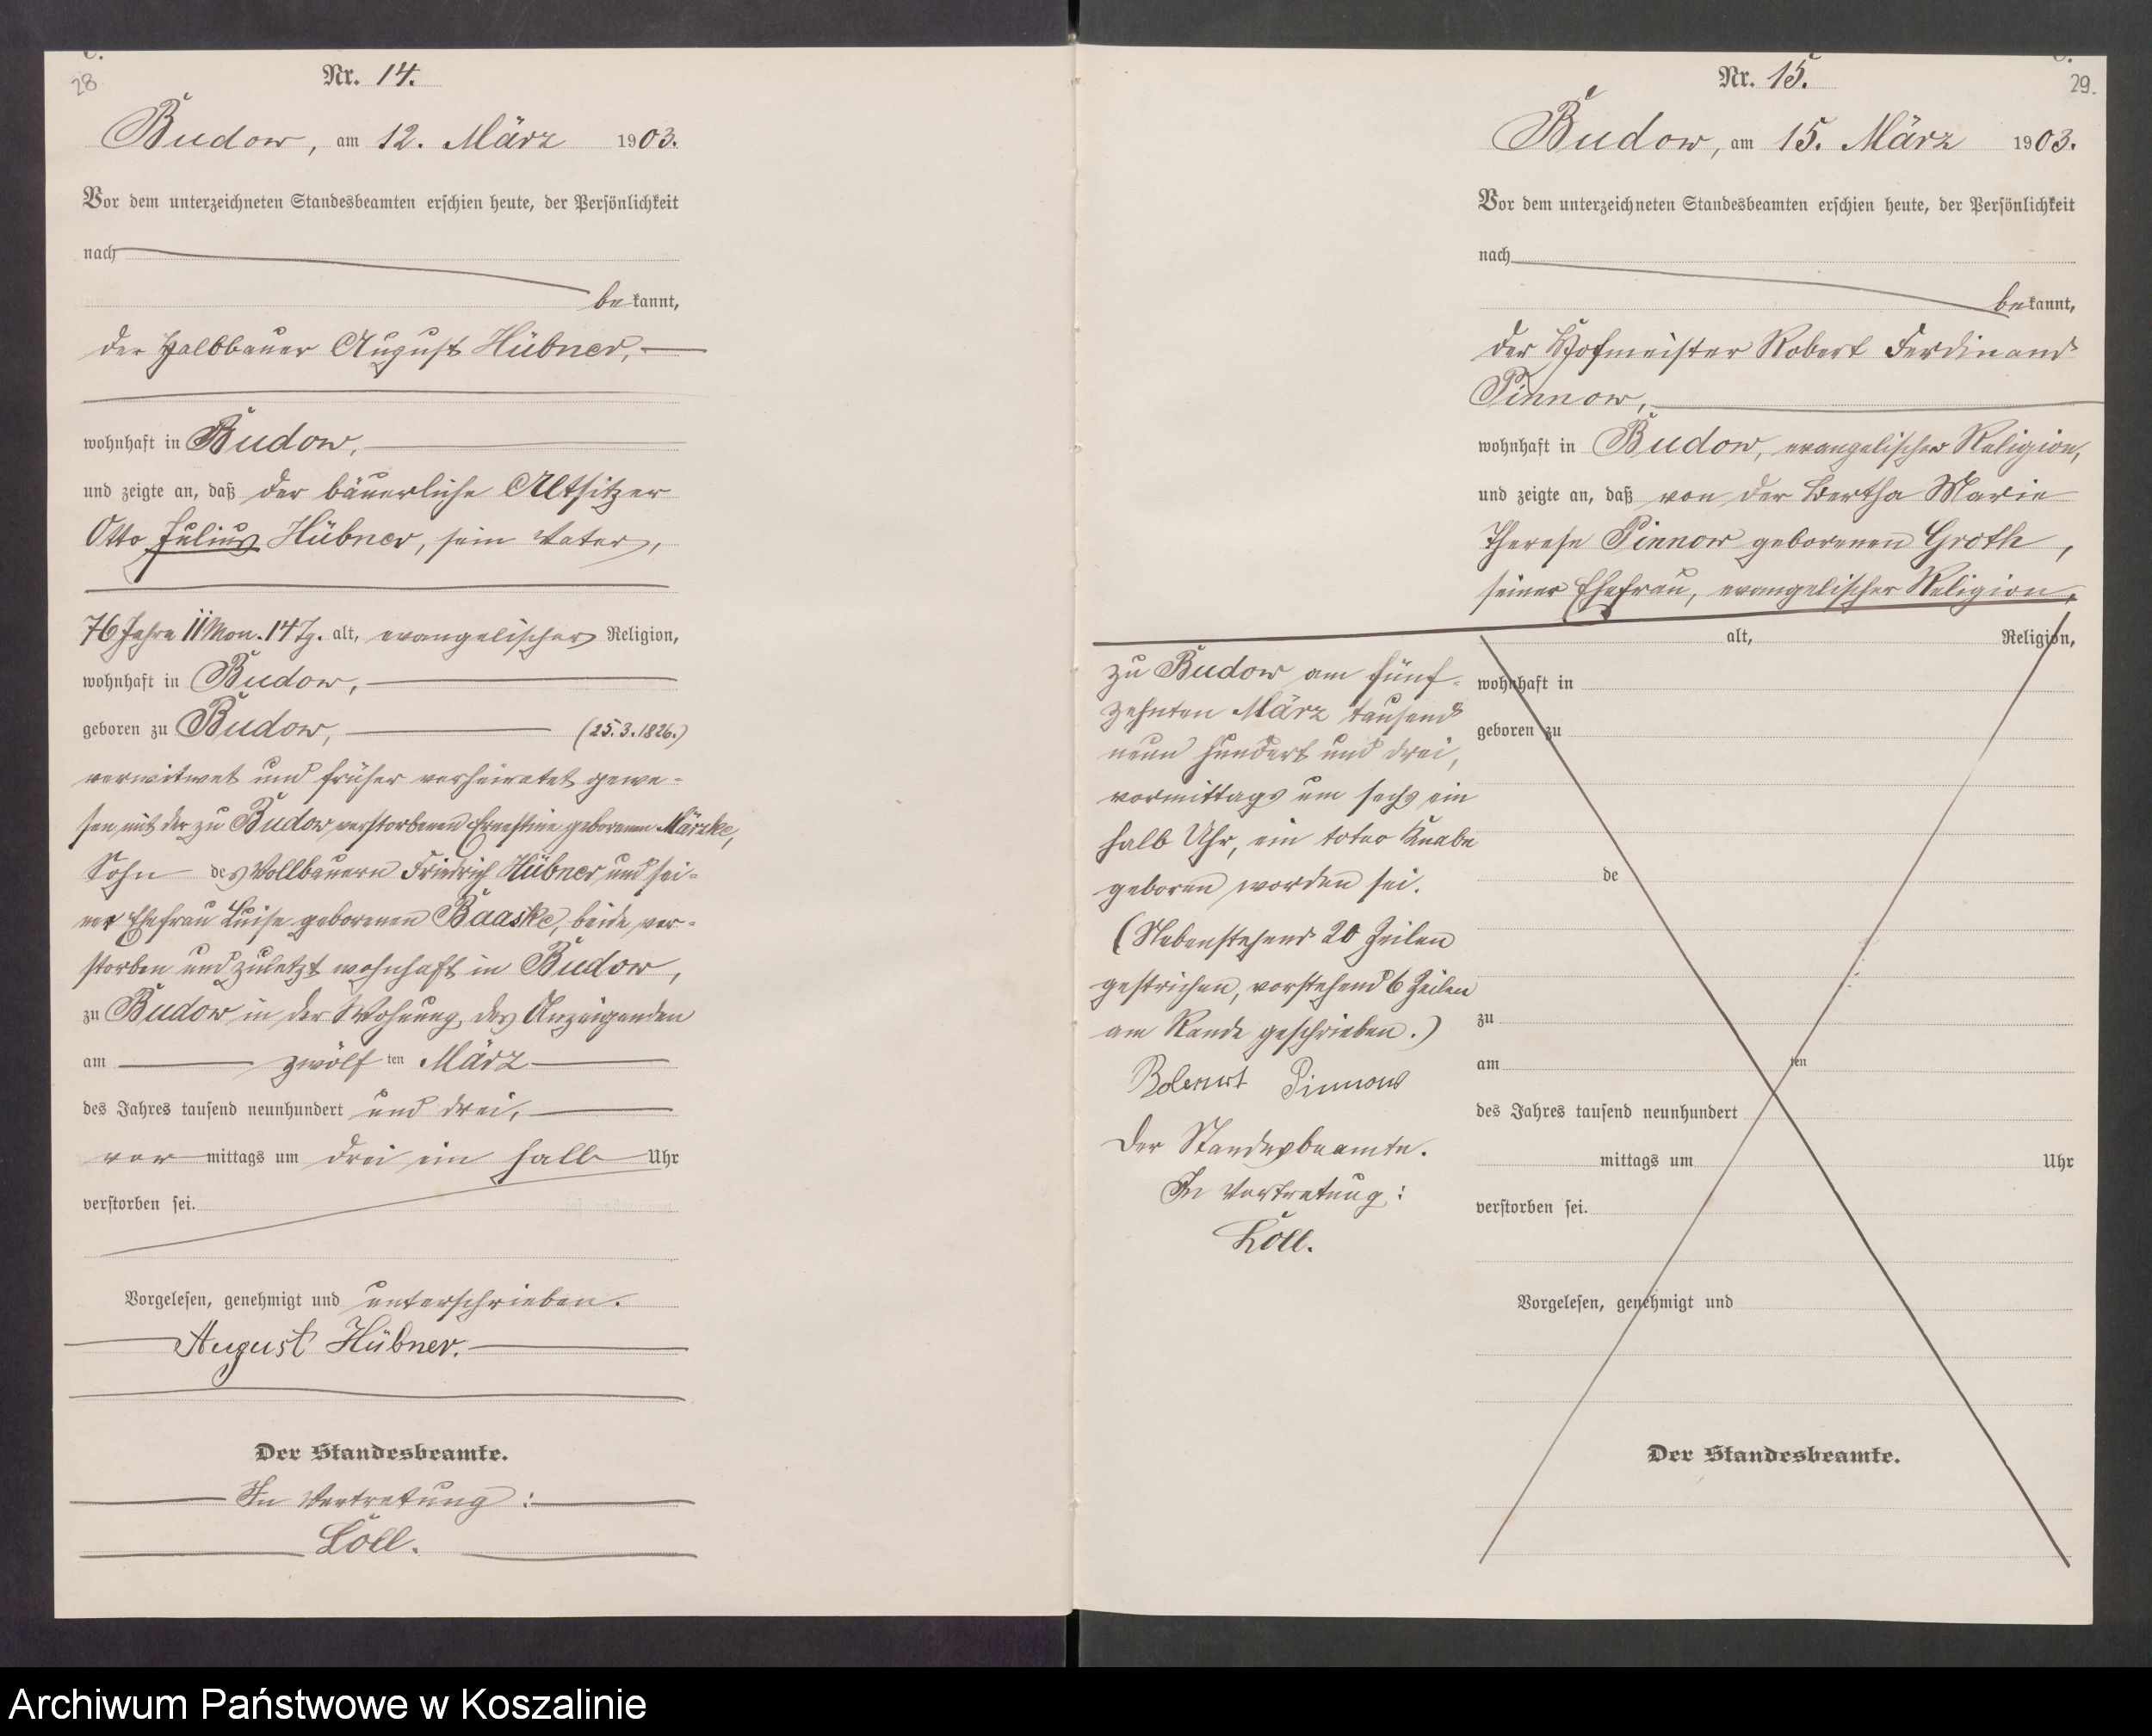 28
Nr. 14.
Budow, am 12. März 1903.
Vor dem unterzeichneten Standesbeamten erschien heute, der Persönlichkeit
nach
bekannt,
der Halbbauer August Hübner,
wohnhaft in Budow,
und zeigte an, daß der bäuerliche Altsitzer
Otto Julius Hübner, sein Vater,
76 Jahre 11 Mon. 14 Tg. alt, evangelischer Religion,
wohnhaft in Budow,
geboren zu Budow, (25.3.1826.)
verwitwet und früher verheiratet gewe-
sen mit der zu Budow verstorbenen Ernestine geborenen Märzke,
Sohn des Vollbauern Friedrich Hübner und sei-
ner Ehefrau Luise geborenen Baaske, beide ver-
storben und zuletzt wohnhaft in Budow,
zu Budow in der Wohnung des Anzeigenden
am zwölften März
des Jahres tausend neunhundert und drei,
vormittags um drei ein halb Uhr
verstorben sei.
Vorgelesen, genehmigt und unterschrieben.
August Hübner.
Der Standesbeamte.
In Vertretung:
Löll.
29.
Nr. 15.
Budow, am 15. März 1903.
Vor dem unterzeichneten Standesbeamten erschien heute, der Persönlichkeit
nach
bekannt,
der Hofmeister Robert Ferdinand
Pinnow,
wohnhaft in Budow, evangelischer Religion,
und zeigte an, daß von der Bertha Marie
Therese Pinnow geborenen Groth,
seiner Ehefrau, evangelischer Religion,
zu Budow am fünf-
zehnten März tausend
neun hundert und drei,
vormittags um sechs ein
halb Uhr, ein toter Knabe
geboren worden sei.
(Nebenstehend 20 Zeilen
gestrichen, vorstehend 6 Zeilen
am Rande geschrieben.)
Pinnow
Der Standesbeamte.
In Vertretung:
Löll.
alt, Religion,
wohnhaft in
geboren zu
de
zu
am ten
des Jahres tausend neunhundert
mittags um Uhr
verstorben sei.
Vorgelesen, genehmigt und
Der Standesbeamte.
Archiwum Państwowe w Koszalinie